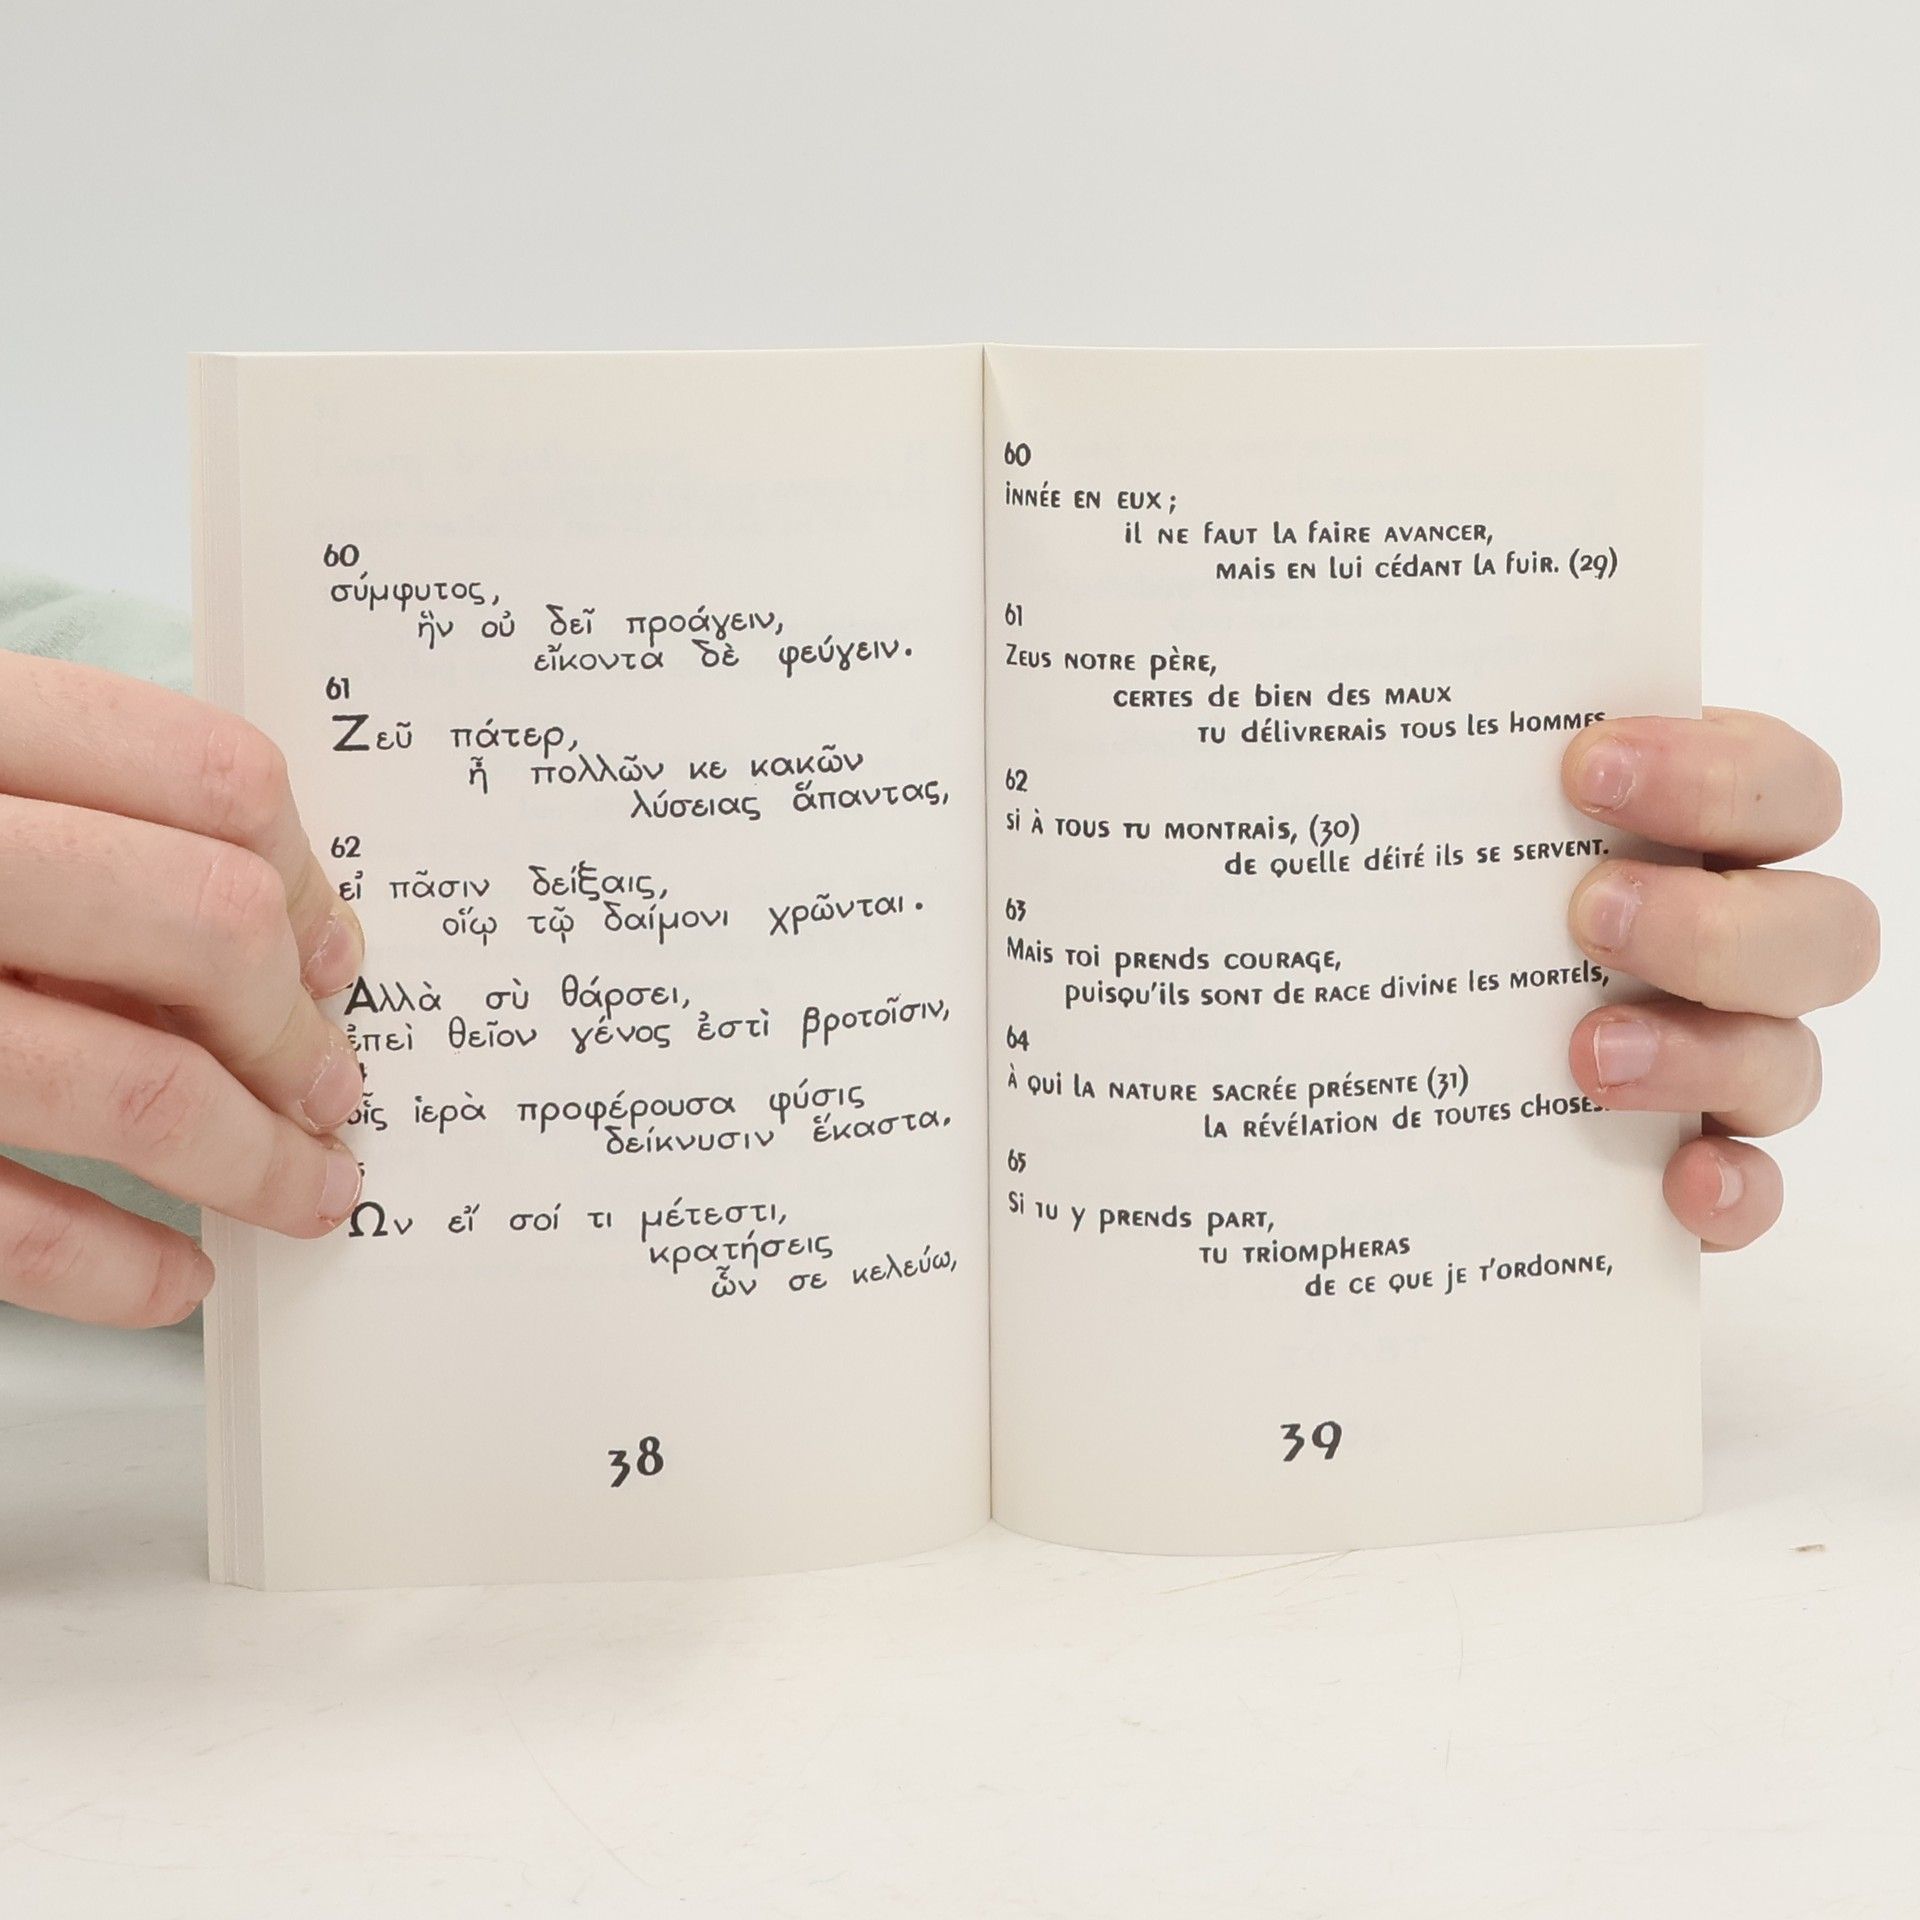 60
σύμφυτος,
ἣν οὐ δεῖ προάγειν,
εἴκοντα δὲ φεύγειν.
61
Ζεῦ πάτερ,
ἦ πολλῶν κε κακῶν
λύσειας ἅπαντας,
62
εἰ πᾶσιν δείξαις,
οἵῳ τῷ δαίμονι χρῶνται.
Ἀλλὰ σὺ θάρσει,
ἐπεὶ θεῖον γένος ἐστὶ βροτοῖσιν,
οἷς ἱερὰ προφέρουσα φύσις
δείκνυσιν ἕκαστα.
Ὧν εἴ σοί τι μέτεστι,
κρατήσεις
ὧν σε κελεύω,
38
60
innée en eux ;
il ne faut la faire avancer,
mais en lui cédant la fuir. (29)
61
Zeus notre père,
certes de bien des maux
tu délivrerais tous les hommes
62
si à tous tu montrais, (30)
de quelle déité ils se servent.
63
Mais toi prends courage,
puisqu'ils sont de race divine les mortels,
64
À qui la nature sacrée présente (31)
la révélation de toutes choses.
65
Si tu y prends part,
tu triompheras
de ce que je t'ordonne,
39